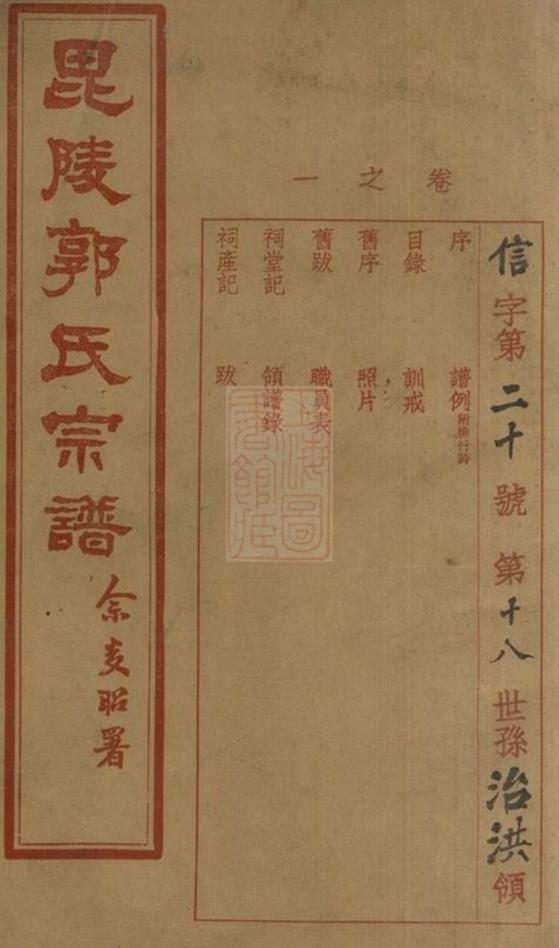 毘陵郭氏宗譜
昭署
卷之一
信字第二十號 第十八世孫治洪領
序 譜例附排行詩
目錄 訓戒
舊序 照片
舊跋 職員表
祠堂記 領譜錄
祠產記 跋
上海圖書館藏